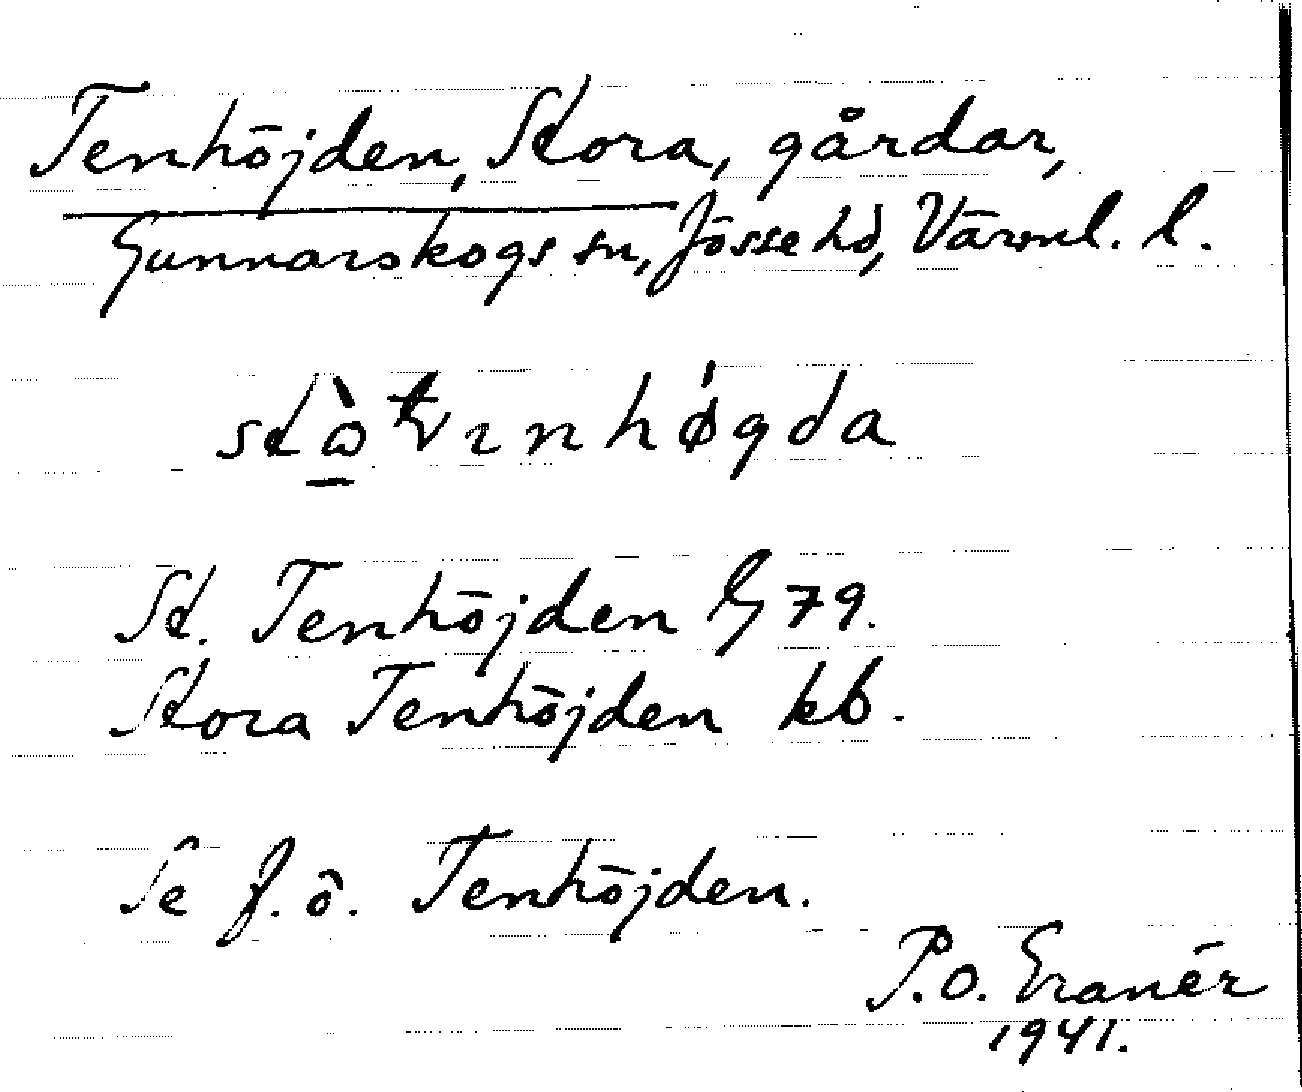 Tenhöjden, Stora, gårdar,
Gunnarskogs sn, Jösse hd, Värml. l.
St. Tenhöjden G 79.
Stora Tenhöjden kb.
Se f. ö. Tenhöjden.
P.O. Eranér
1941.